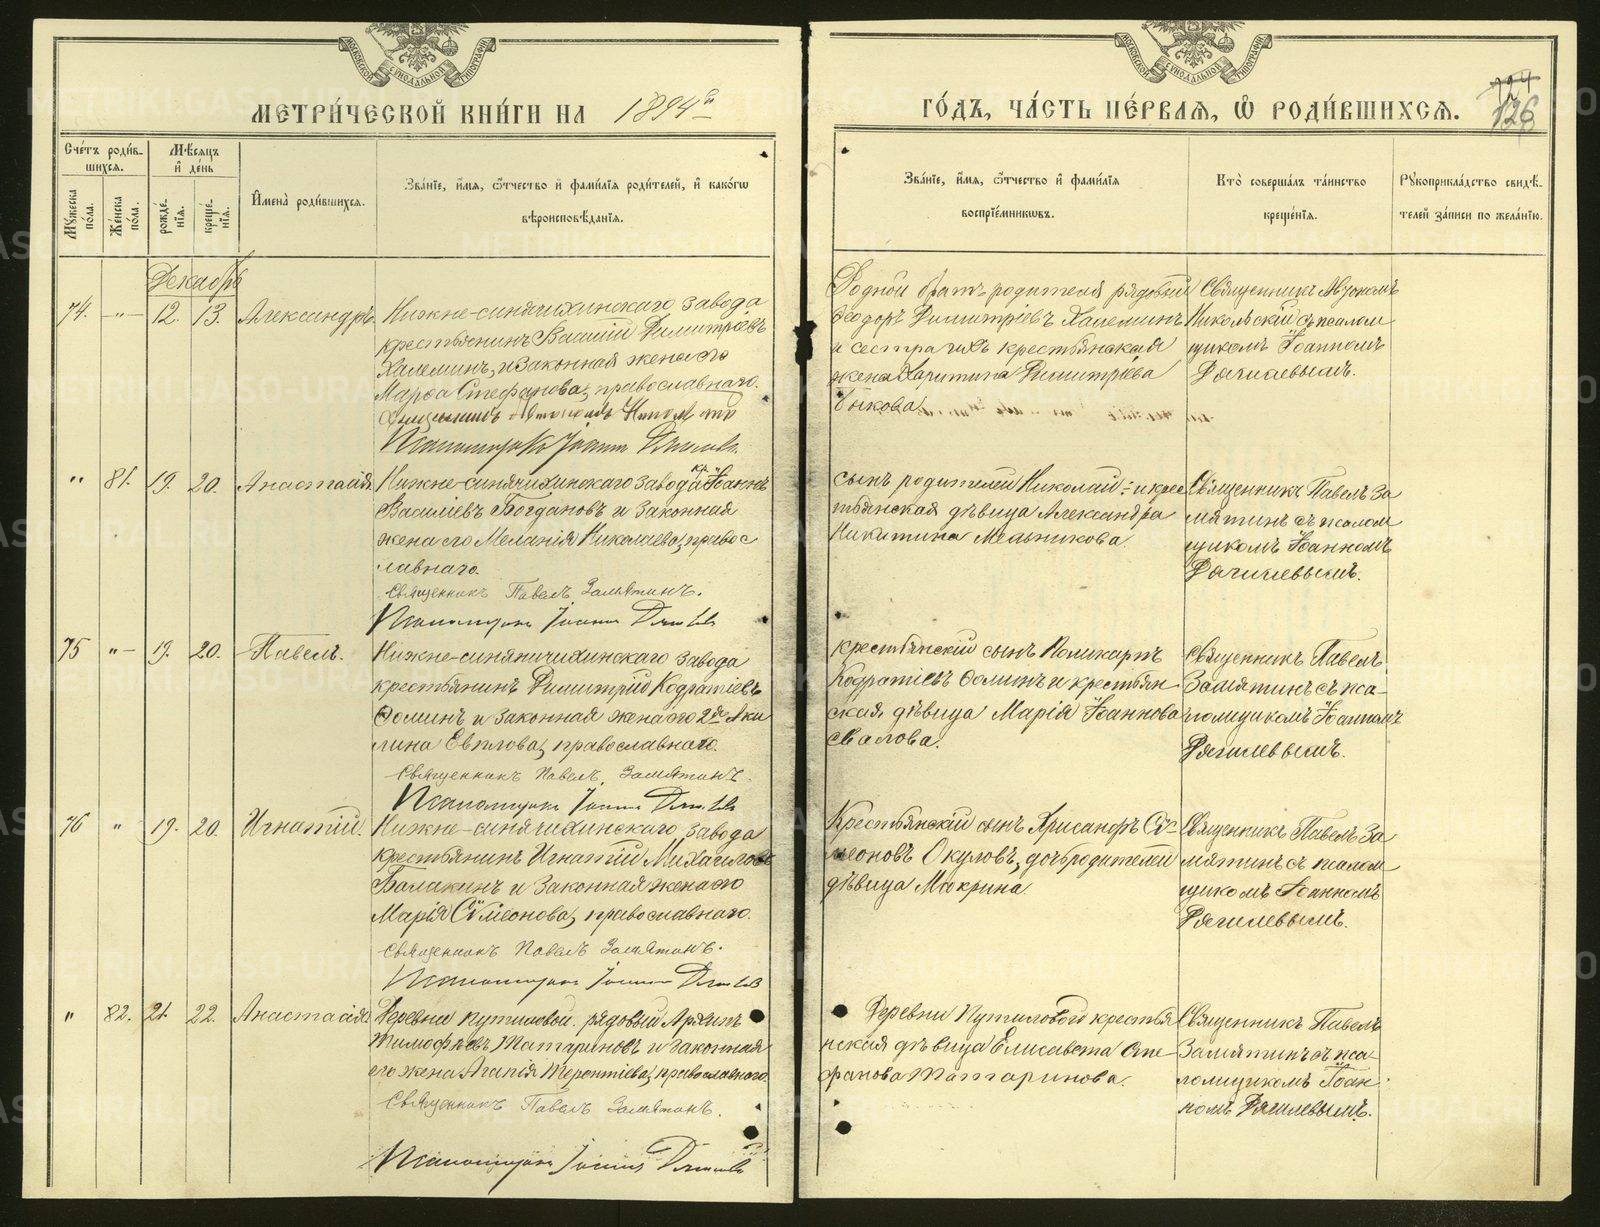 МЕТРИ́ЧЕСКОЙ КНИ́ГИ НА 1894й
ГО́ДЪ, ЧА́СТЬ ПЕ́РВАЯ, Ѿ РОДИ́ВШИХСЯ.
126
Сче́тъ роди́в-
шихся.
Мѣсяцъ
и де́нь
Мꙋжеска по́ла.
Же́нска по́ла.
рожде́-
нїя.
креще́-
нїя.
Имена̀ роди́вшихся.
Зва́нїе, и́мя, ѻ́тчество и фами́лїя роди́телей, и како́гѡ
вѣроисповѣ́данїя.
Зва́нїе, и́мя, ѻ́тчество и фами́лїя
воспрїе́мниковъ.
Кто̀ соверша́лъ та́инство
креще́нїя.
Рꙋкоприкла́дство свидѣ́-
телей за́писи по жела́нїю.
Декабрь
74. -"- 12. 13. Александръ.
Нижне-синячихинскаго завода
крестьянинъ Василій Димитріевъ
Халеминъ, и законная жена его
Марѳа Стефанова, православнаго.
Псаломщикъ Іоаннъ
Родной братъ родителя рядовый
Ѳеодоръ Димитріевъ Халеминъ
и сестра ихъ крестьянская
жена Харитина Димитріева
Быкова
Священникъ
Никольскій съ псалом
щикомъ Іоанномъ
" 81. 19. 20. Анастасія
Нижне-синячихинскаго завода кр. Іоаннъ
Василіевъ Богдановъ и законная
жена его Меланія Николаева, правос
лавнаго.
Священникъ Павелъ Замятинъ.
Псаломщикъ Іоаннъ
сынъ родителей Николай и крес
тьянская дѣвица Александра
Никитина Мельникова.
Священникъ Павелъ За
мятинъ съ псалом
щикомъ Іоанномъ
75 "- 19. 20. Павелъ.
Нижне-синячихинскаго завода
крестьянинъ Димитрій Кодратіевъ
Ѳоминъ и законная жена его 2я Аки
лина Евплова, православнаго.
Священникъ Павелъ Замятинъ.
Псаломщикъ Іоаннъ
крестьянскій сынъ Поликарпъ
Кодратіевъ Ѳоминъ и крестьян-
ская дѣвица Марія Іоаннова
Свалова.
Священникъ Павелъ
Замятинъ съ пса-
ломщикомъ Іоанномъ
76 " 19. 20. Игнатій.
Нижне-синячихинскаго завода
крестьянинъ Игнатій Михаиловъ
Балакинъ и законная жена его
Марія Сѵмеонова, православнаго.
Священникъ Павелъ Замятинъ.
Псаломщикъ Іоаннъ
Крестьянскій сынъ Хрисанфъ Сѵ-
меоновъ Окуловъ, дочь родителей
дѣвица Макрина.
Священникъ Павелъ За
мятинъ съ псалом
щикомъ Іоанномъ
" 82. 21. 22. Анастасія
Деревни Путиловой рядовый Архипъ
Тимоѳѣевъ Татариновъ и законная
его жена Агапія Терентіева, православнаго.
Священникъ Павелъ Замятинъ.
Псаломщикъ Іоаннъ
Деревни Путиловой крестья
нская дѣвица Елисавета Сте-
фанова Татаринова.
Священникъ Павелъ
Замятинъ съ пса-
ломщикомъ Іоан-
номъ
METRIKI.GASO-URAL.RU